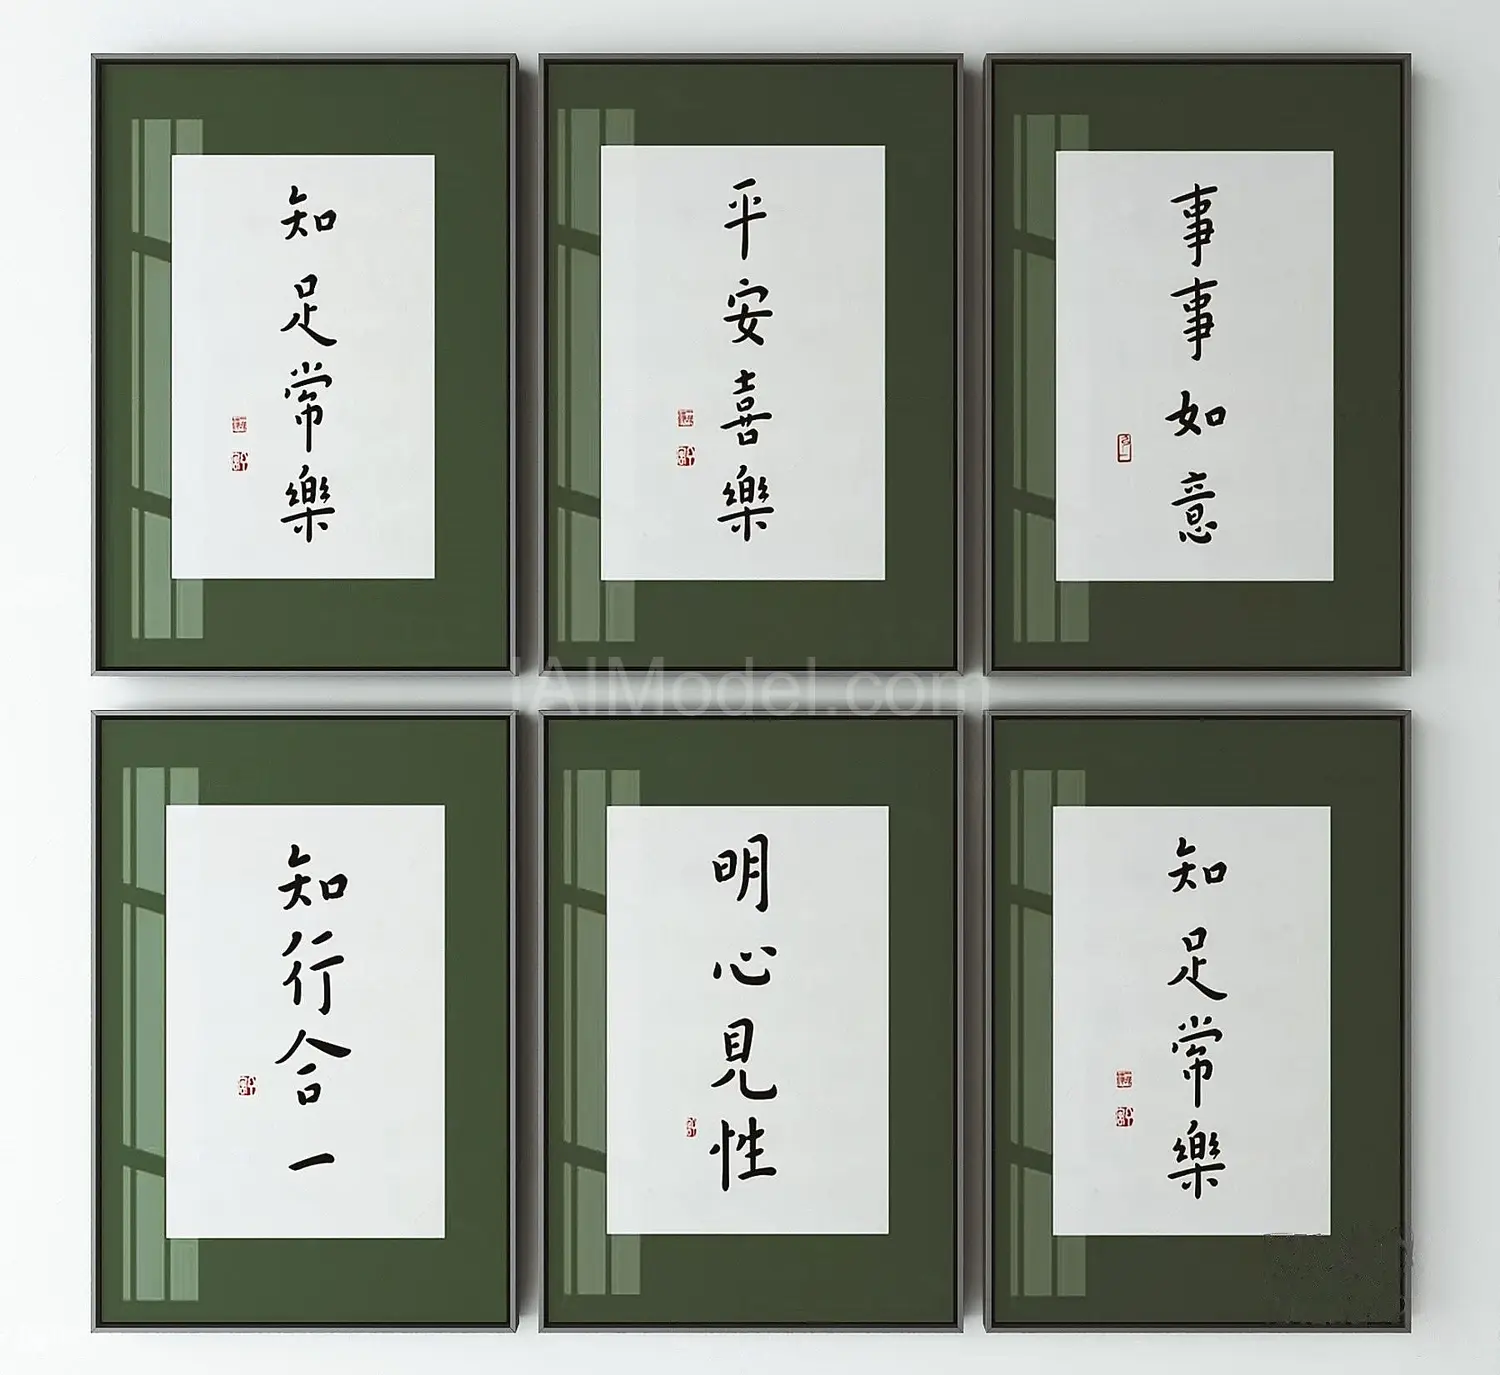 知足常樂
平安喜樂
事事如意
知行合一
明心見性
知足常樂
IAIModel.com